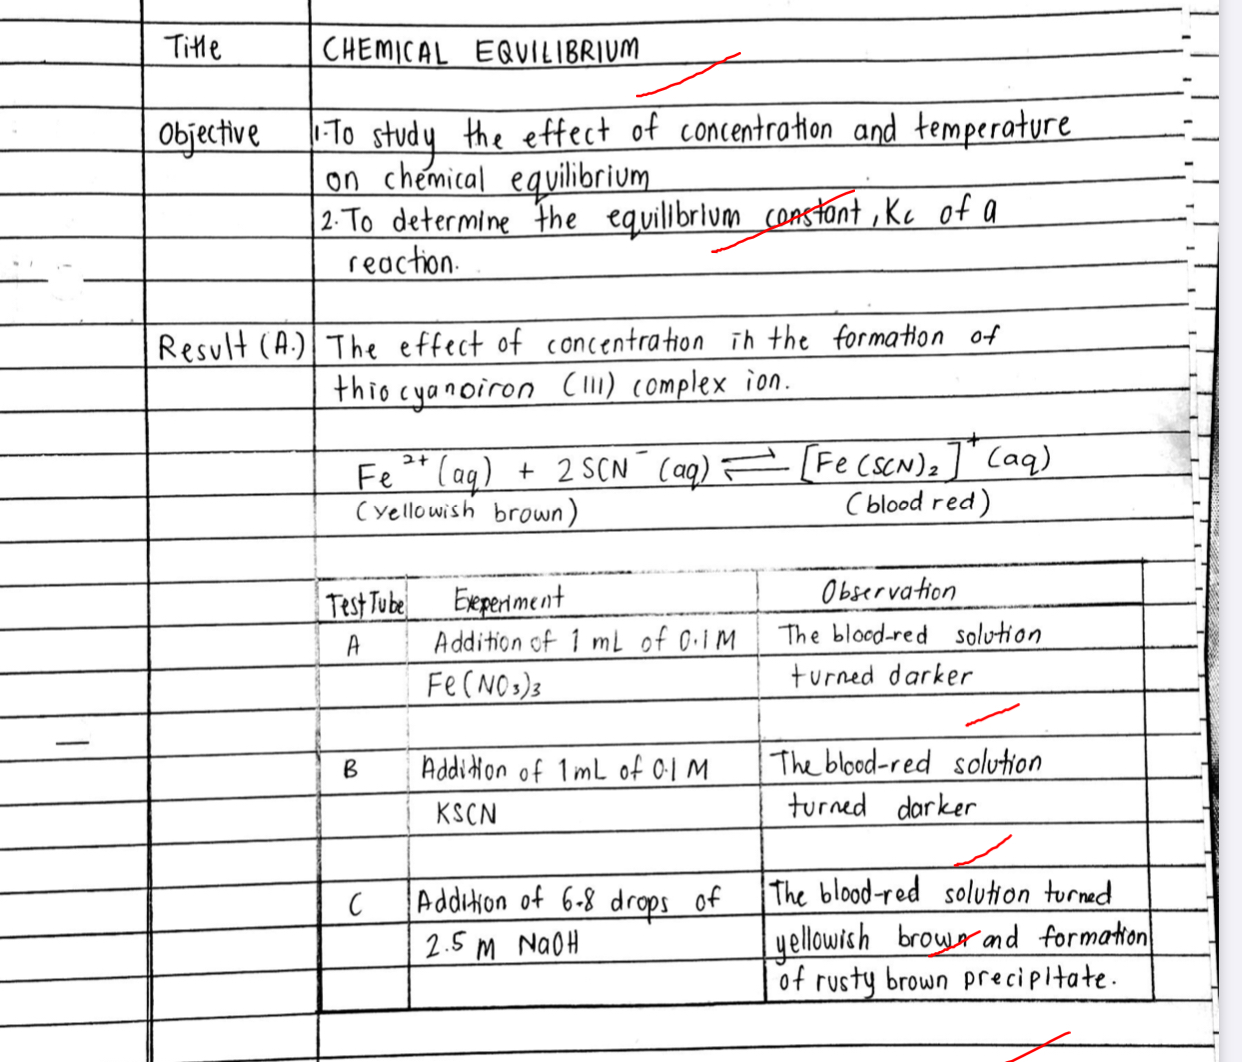 Title CHEMICAL EQUILIBRIUM
Objective 1.To study the effect of concentration and temperature
on chemical equilibrium
2.To determine the equilibrium constant, Kc of a
reaction.
Result (A.) The effect of concentration in the formation of
thiocyanoiron (III) complex ion.
Fe²⁺(aq) + 2SCN⁻(aq) ⇌ [Fe(SCN)₂]⁺(aq)
(yellowish brown) (blood red)
Test Tube Experiment Observation
A Addition of 1 mL of 0.1M The blood-red solution
Fe(NO₃)₃ turned darker
B Addition of 1mL of 0.1 M The blood-red solution
KSCN turned darker
C Addition of 6-8 drops of The blood-red solution turned
2.5 M NaOH yellowish brown and formation
of rusty brown precipitate.